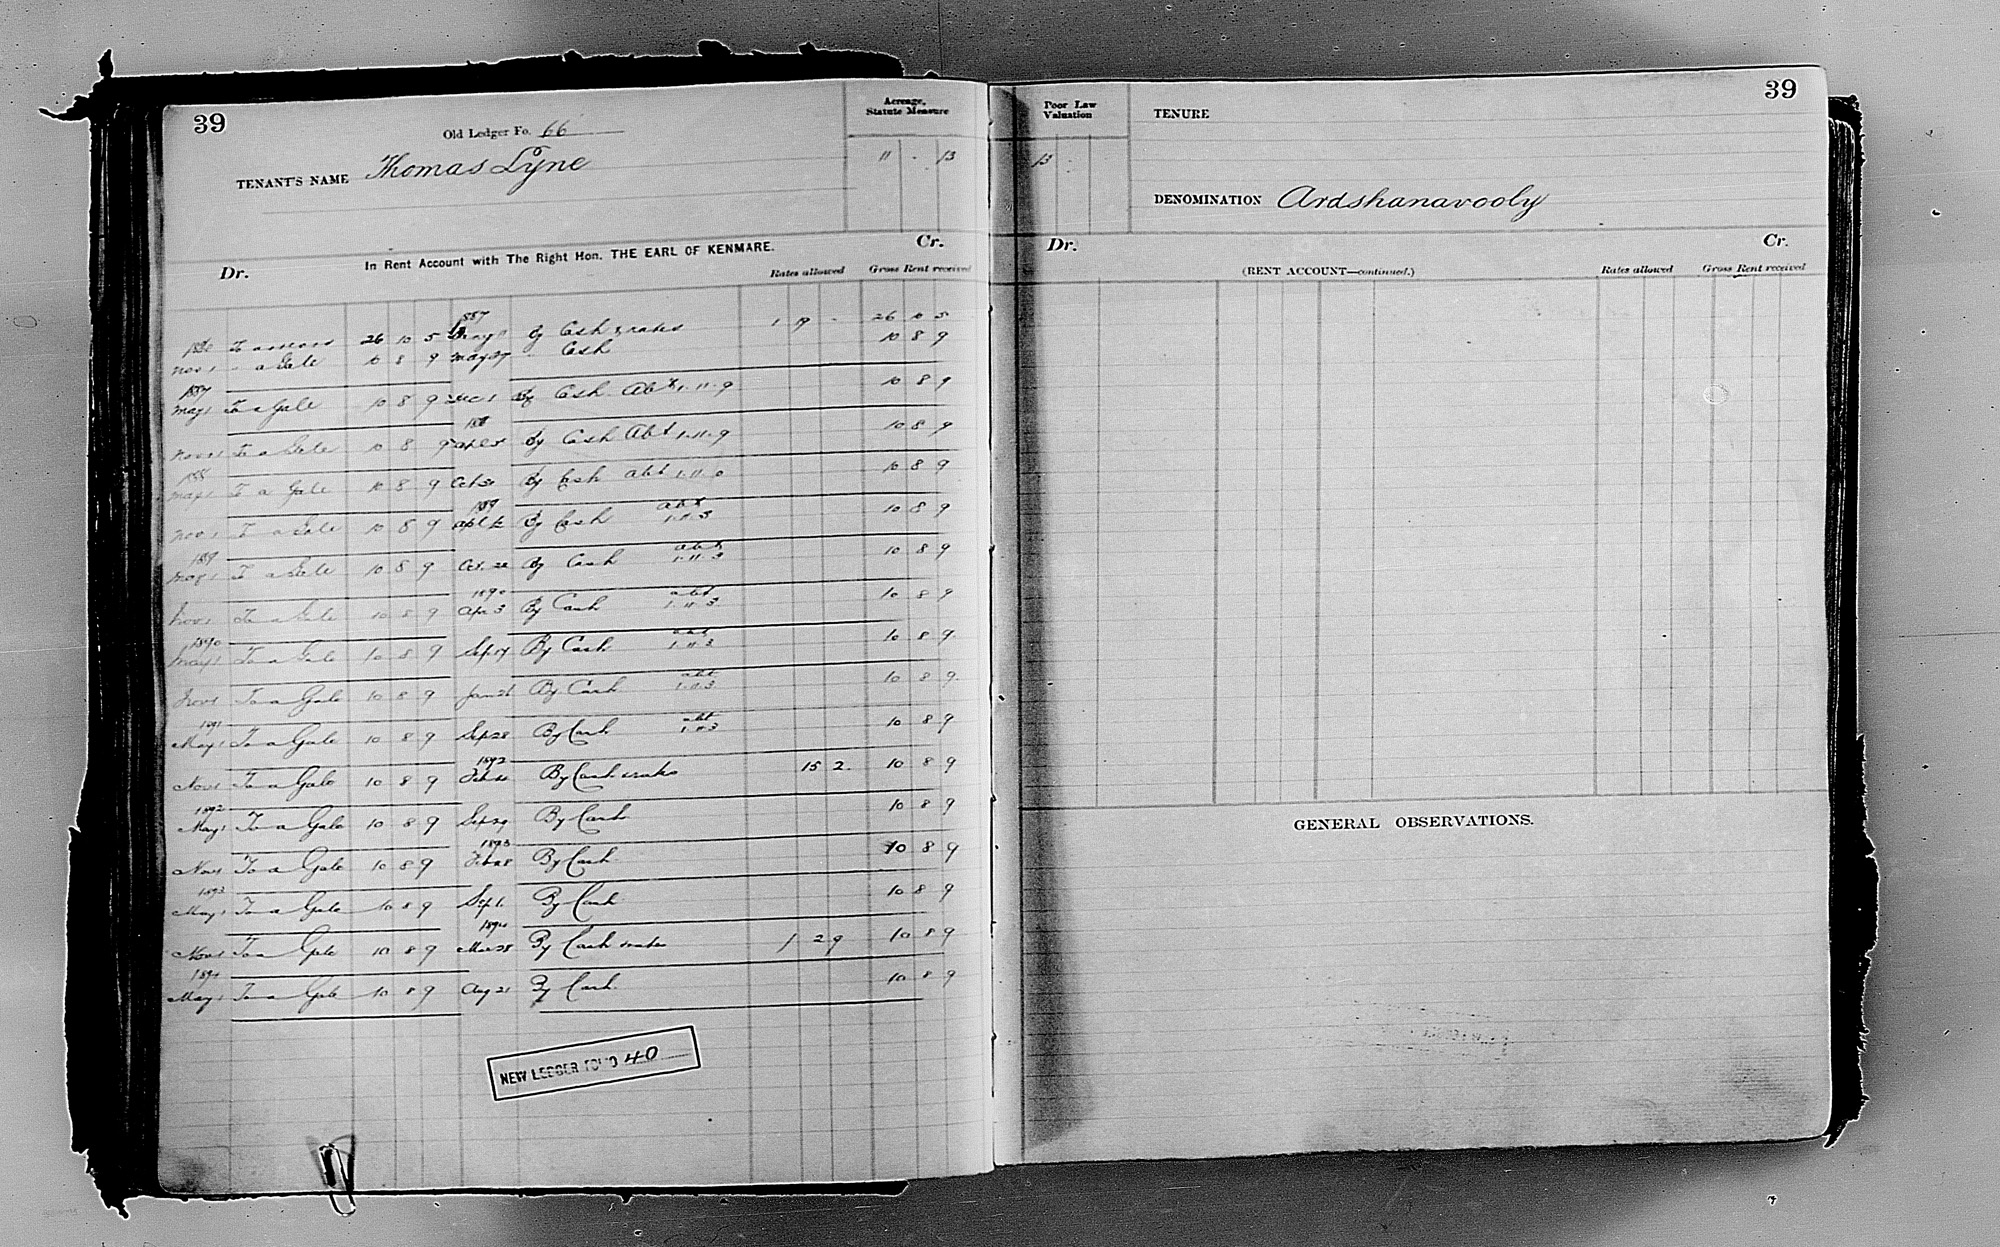 39
Old Ledger Fo. 66
Acreage,
Statute Measure
TENANT'S NAME Thomas Lyne
11 - 13
In Rent Account with The Right Hon. THE EARL OF KENMARE.
Dr.
Cr.
Rates allowed
Gross Rent received
1887
To arrears 26 10 5 By Cash & rates 1 19 - 26 10 5
Nov 1 " a Gale 10 8 9 May 27 " Cash 10 8 9
1887
May 1 To a Gale 10 8 9 Dec 1 By Cash Abt 1.11.9 10 8 9
188
Nov 1 To a Gale 10 8 9 By Cash Abt 1.11.9 10 8 9
188
May 1 To a Gale 10 8 9 Oct 31 By Cash abt 1.11.0 10 8 9
1889 abt
Nov 1 To a Gale 10 8 9 Apl By Cash 1.11.3 10 8 9
1889 abt
May 1 To a Gale 10 8 9 Oct. 22 By Cash 1.11.3 10 8 9
1890 abt
Nov 1 To a Gale 10 8 9 Apr 3 By Cash 1.11.3 10 8 9
1890 abt
May 1 To a Gale 10 8 9 Sep 17 By Cash 1.11.3 10 8 9
abt
Nov 1 To a Gale 10 8 9 Jan 26 By Cash 1.11.3 10 8 9
1891 abt
May 1 To a Gale 10 8 9 Sep 28 By Cash 1.11.3 10 8 9
1892
Nov 1 To a Gale 10 8 9 Feb By Cash & rates 15 2 10 8 9
1892
May 1 To a Gale 10 8 9 Sep 29 By Cash 10 8 9
1893
Nov 1 To a Gale 10 8 9 Feb 28 By Cash 10 8 9
1893
May 1 To a Gale 10 8 9 Sep 1. By Cash 10 8 9
1894
Nov 1 To a Gale 10 8 9 Mar 28 By Cash & rates 1 2 9 10 8 9
1894
May 1 To a Gale 10 8 9 Aug 21 By Cash. 10 8 9
NEW LEDGER FOLIO 40
39
Poor Law
Valuation
13 -
TENURE
DENOMINATION Ardshanavooly
Dr.
Cr.
(RENT ACCOUNT—continued.)
Rates allowed
Gross Rent received
GENERAL OBSERVATIONS.